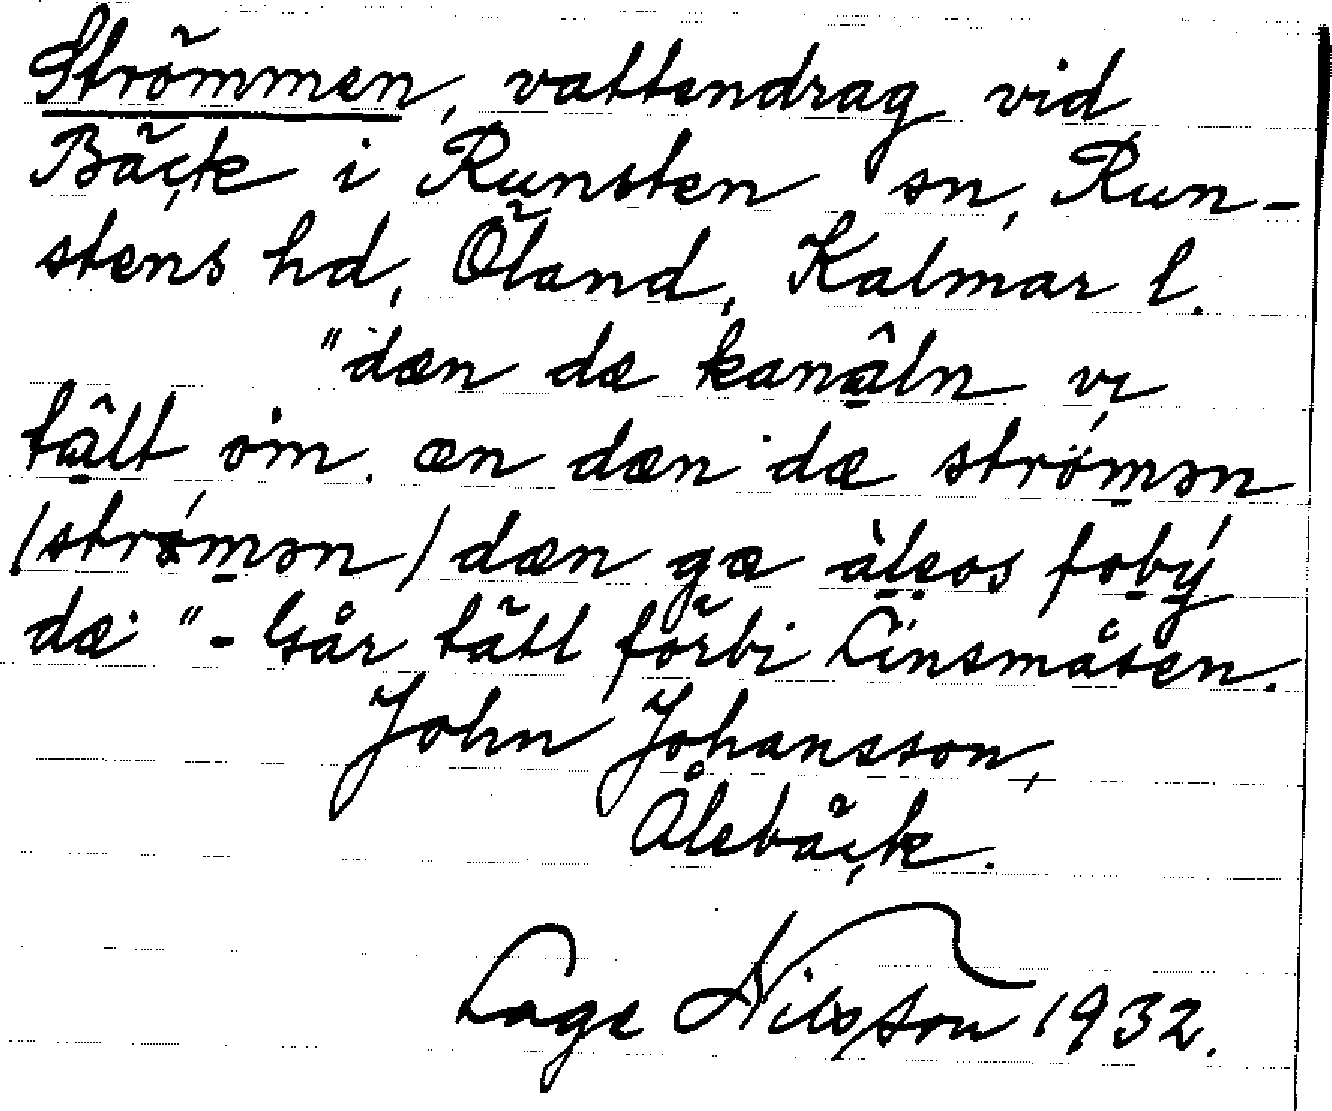 Strömmen, vattendrag vid
Bäck i Runsten sn, Run-
stens hd, Öland, Kalmar l.
"dæn dæ kanâln vı
tâlt om. æn dæn dæ strömən
(strömən) dæn gæ àleos foby
dæ" - Går tätt förbi Linsmåsen.
John Johansson,
Ålebäck.
Lage Nilsson 1932.